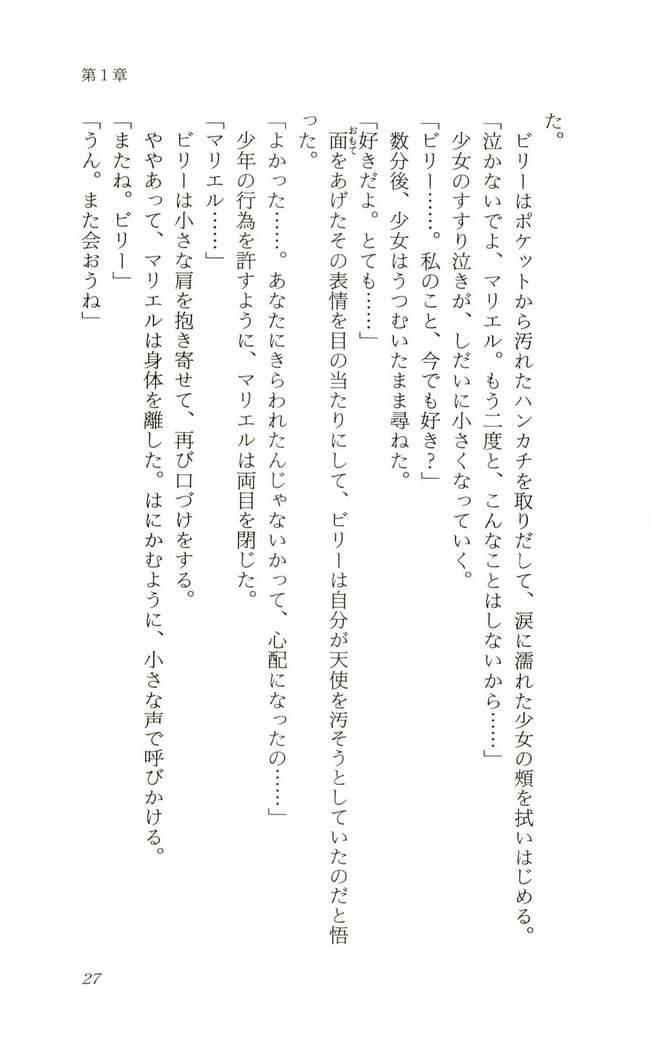 第1章
た。
ビリーはポケットから汚れたハンカチを取りだして、涙に濡れた少女の頰を拭いはじめる。
「泣かないでよ、マリエル。もう二度と、こんなことはしないから……」
少女のすすり泣きが、しだいに小さくなっていく。
「ビリー……。私のこと、今でも好き?」
数分後、少女はうつむいたまま尋ねた。
「好きだよ。とても……」
おもて
面をあげたその表情を目の当たりにして、ビリーは自分が天使を汚そうとしていたのだと悟
った。
「よかった……。あなたにきらわれたんじゃないかって、心配になったの……」
少年の行為を許すように、マリエルは両目を閉じた。
「マリエル……」
ビリーは小さな肩を抱き寄せて、再び口づけをする。
ややあって、マリエルは身体を離した。はにかむように、小さな声で呼びかける。
「またね。ビリー」
「うん。また会おうね」
27